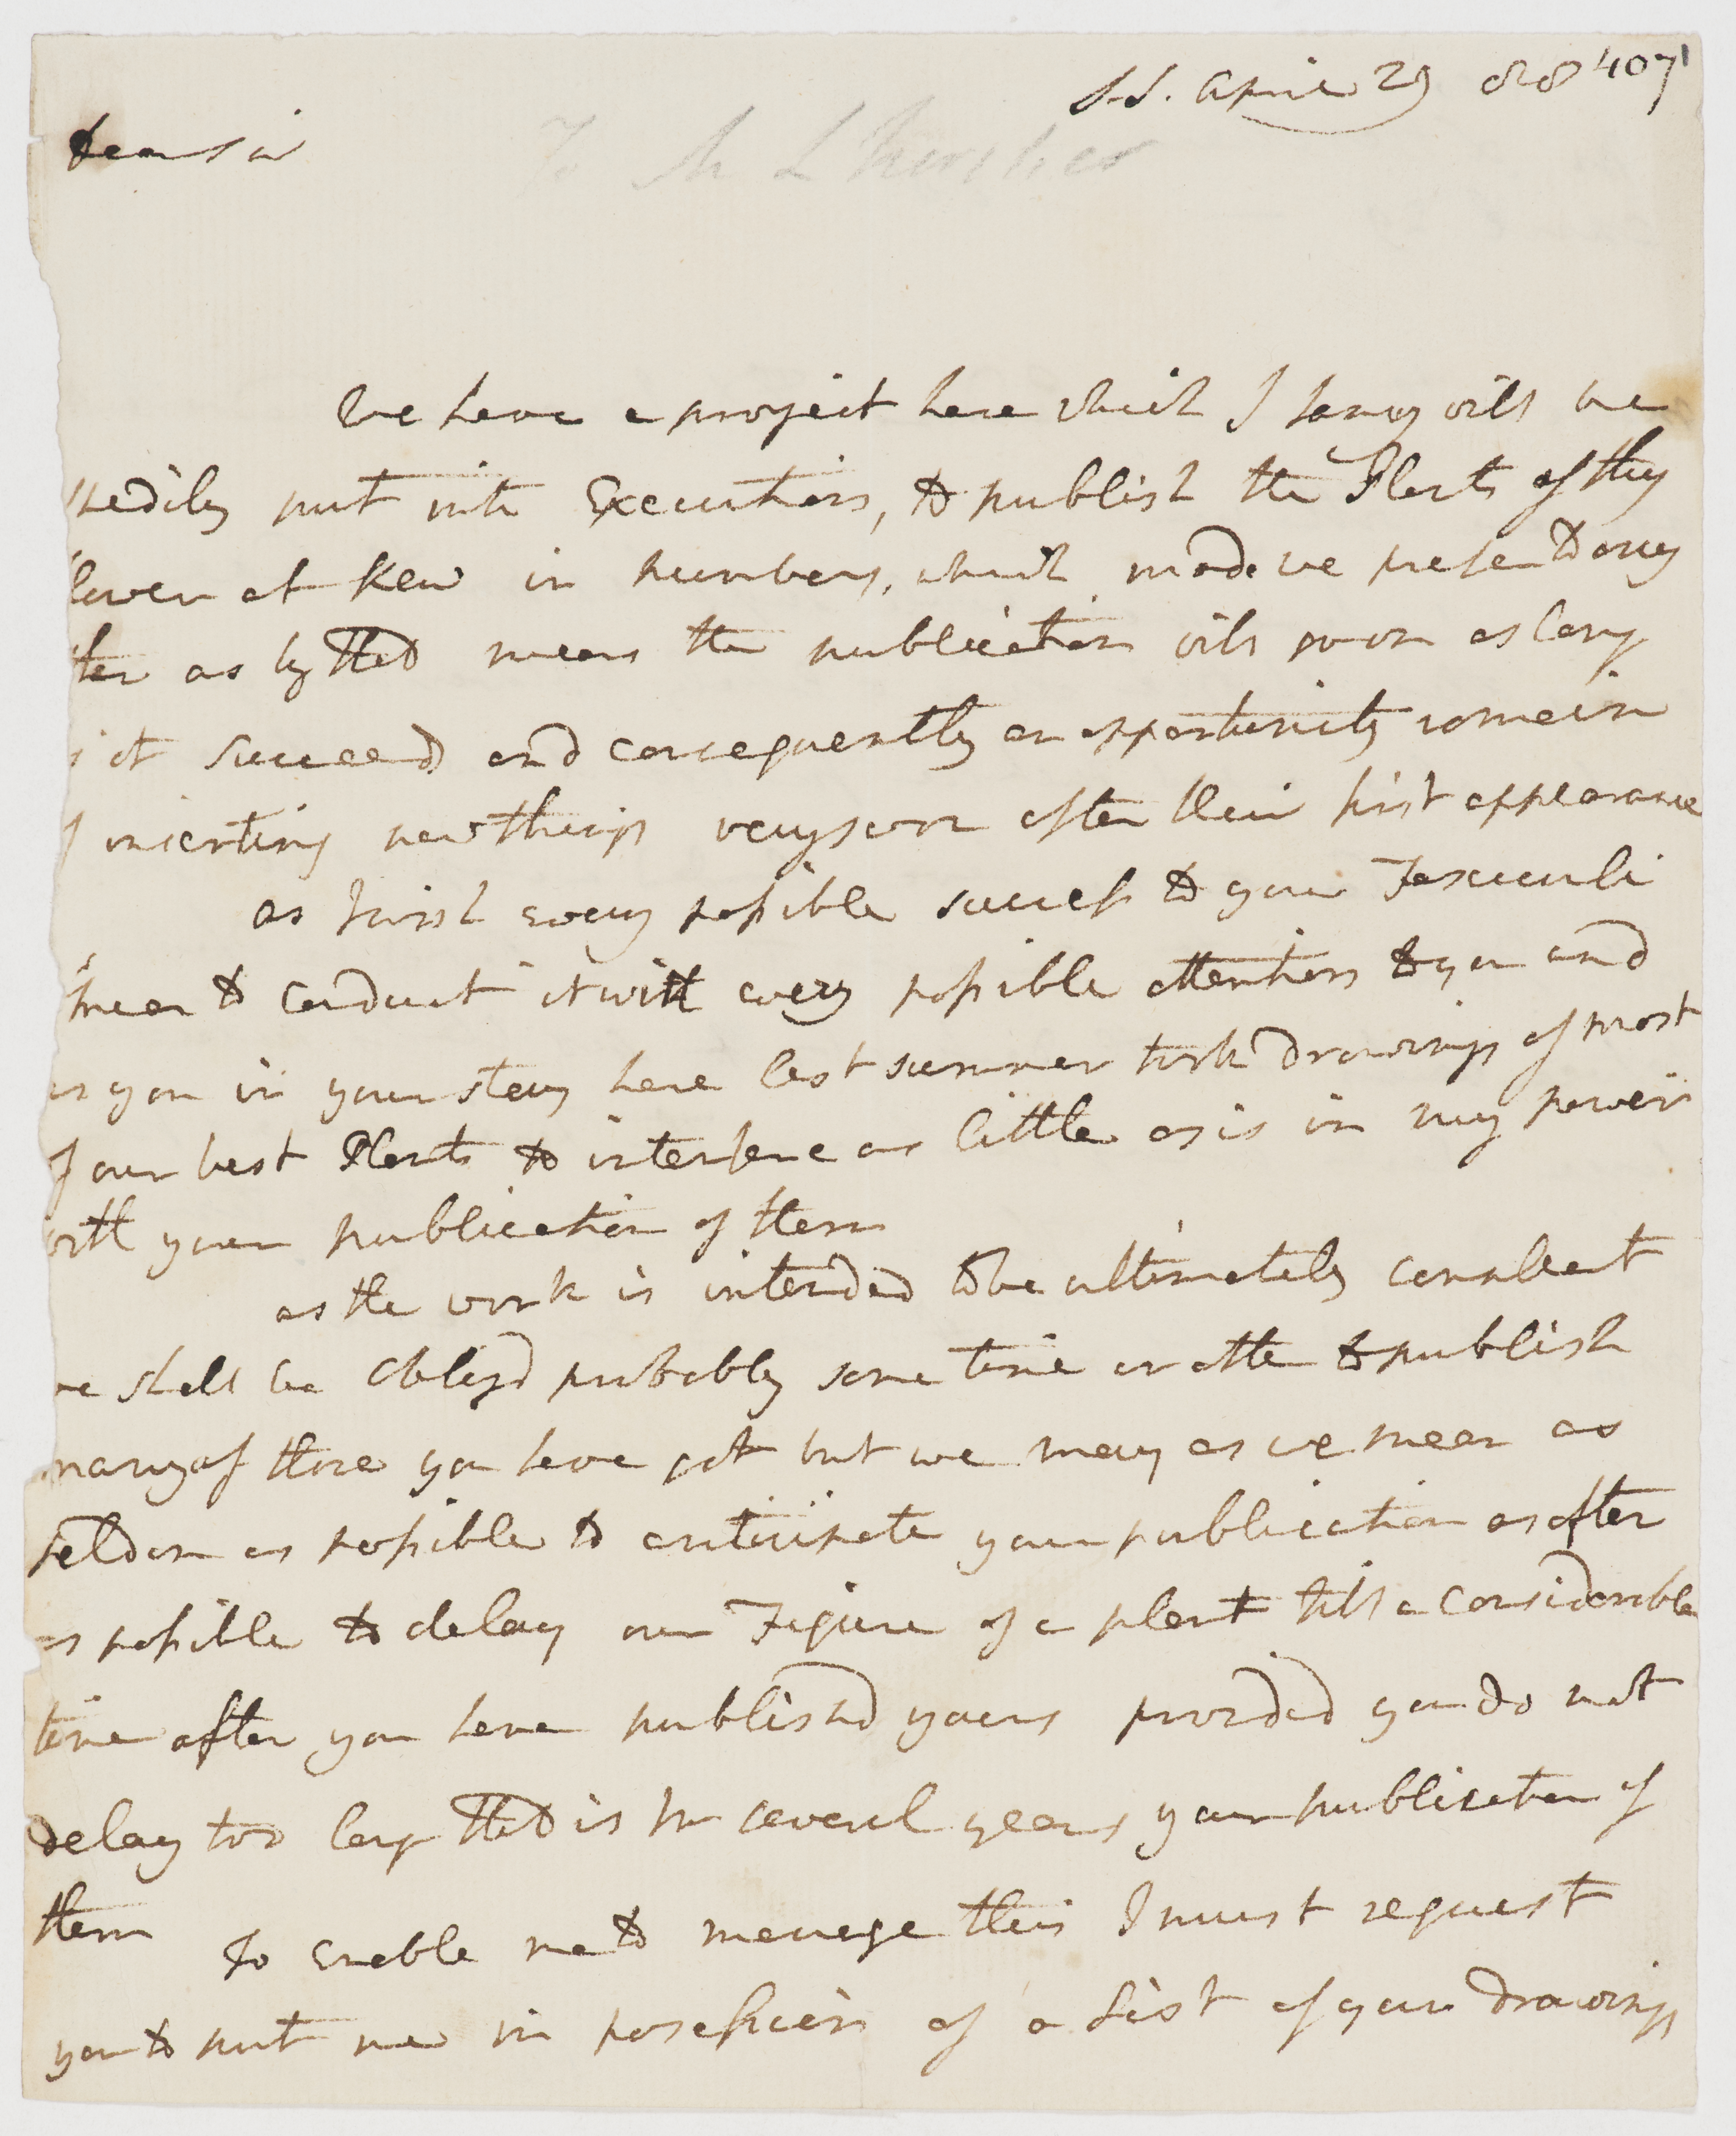 S.S. April 29
Dear Sir
To M L'heritier
We have a project here which I fancy will be
speedily put into Execution, to publish the Plants as they
flower at Kew in numbers, which mode we prefer to any
ther as by that means the publication will go on as long
it succeed and consequently an opportunity remain
f inserting new things very soon after their first appearance
as I wish every possible success to your Fasciculi
I mean to conduct it with every possible attention to you and
as you in your stay here last summer took drawings of most
f our best Plants to interfere as little as is in my power
with your publication of them
as the work is intended to be ultimately compleat
we shall be obligd probably some time or other to publish
many of those you have got but we may as we mean as
seldom as possible to anticipate your publication as often
as possible to delay our Figure of a plant till a Considerable
time after you have publishd yours provided you do not
delay too long that is for several years your publication of
them
To Enable me to manage this I must request
you to put me in possession of a List of your Drawings